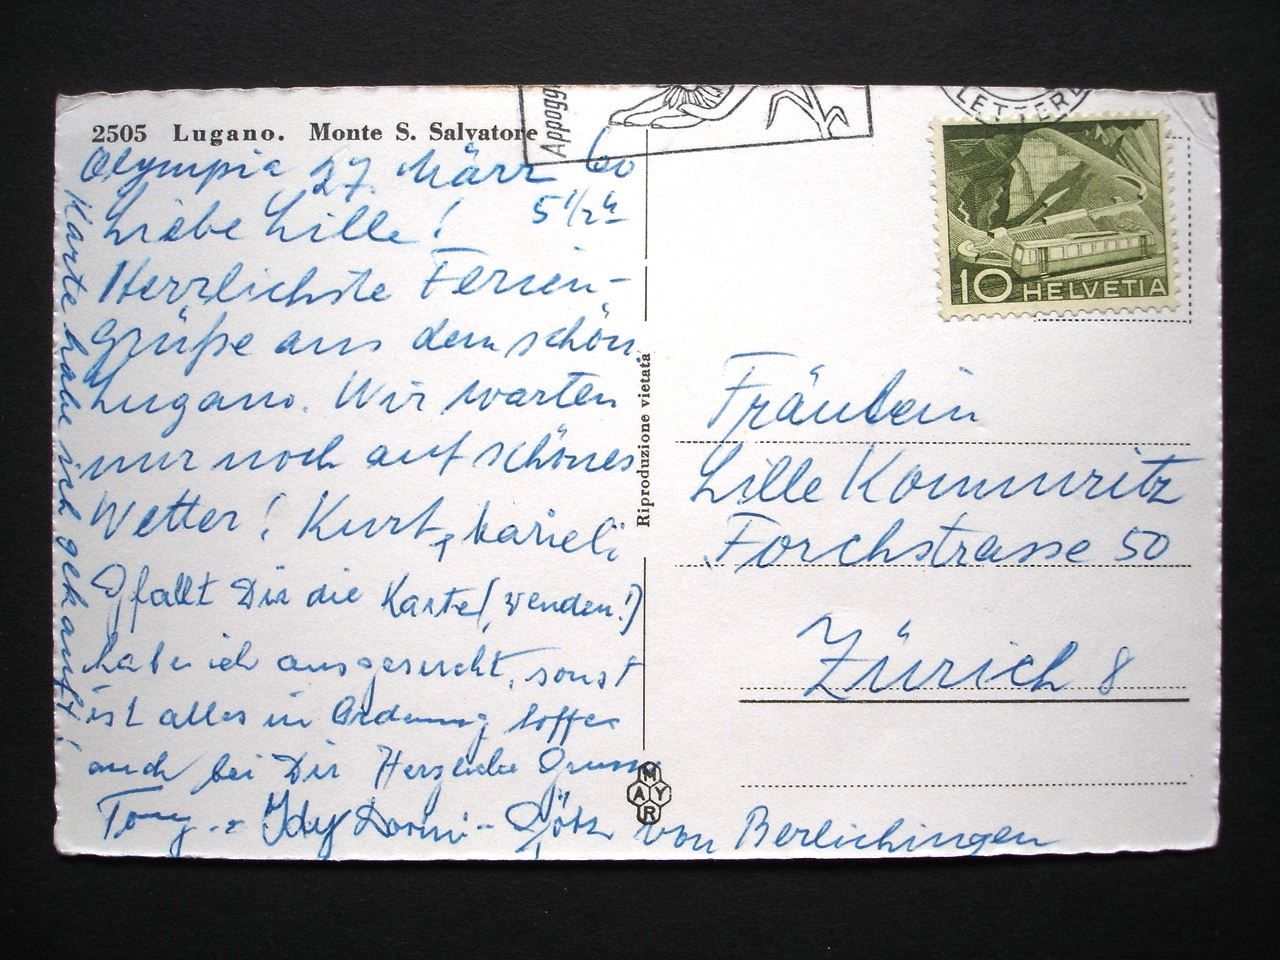 2505 Lugano. Monte S. Salvatore
Appogg
LETTER
10 HELVETIA
Olympia 27. März 60
5 1/2 h
Liebe Lille!
Herrlichste Ferien-
grüße aus dem schön
Lugano. Wir warten
nur noch auf schönes
Wetter! Kurt, Marieli
Gfallt Dir die Karte (wenden!)
habe ich ausgesucht, sonst
ist alles in Ordnung hoffe
auch bei Dir Herzliche Gruss
Tony Idy - Götz von Berlichingen
Karte habe ich gekauft!
Riproduzione vietata
MAYR
Fräulein
Lille
Forchstrasse 50
Zürich 8